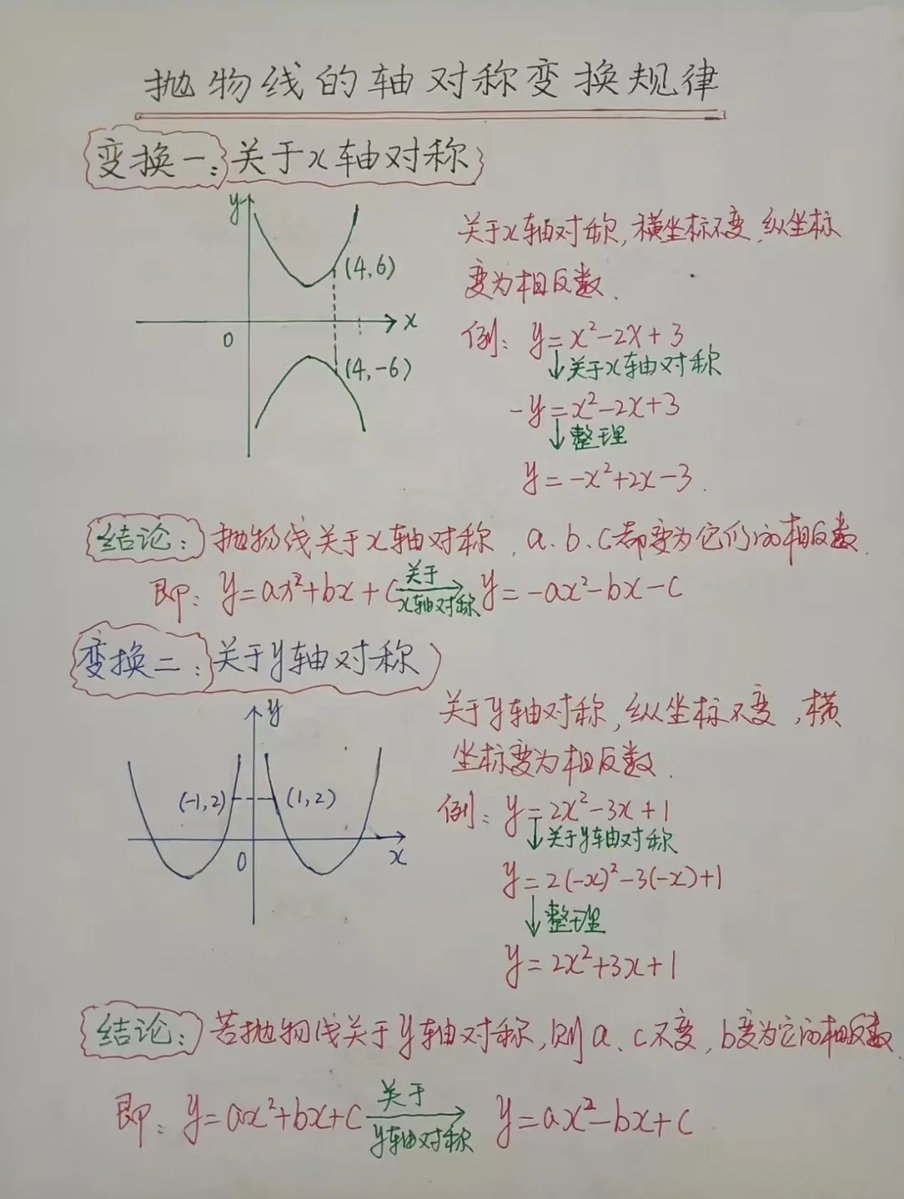 抛物线的轴对称变换规律
变换一:关于x轴对称
y
(4,6)
x
0
(4,-6)
关于x轴对称,横坐标不变,纵坐标
变为相反数.
例: y=x²-2x+3
↓关于x轴对称
-y=x²-2x+3
↓整理
y=-x²+2x-3.
结论: 抛物线关于x轴对称,a.b.c都变为它们的相反数.
即: y=ax²+bx+c 关于x轴对称→ y=-ax²-bx-c
变换二:关于y轴对称
y
(-1,2) (1,2)
0
x
关于y轴对称,纵坐标不变,横
坐标变为相反数.
例: y=2x²-3x+1
↓关于y轴对称
y=2(-x)²-3(-x)+1
↓整理
y=2x²+3x+1
结论: 苦抛物线关于y轴对称,则a、c不变,b变为它的相反数.
即: y=ax²+bx+c 关于y轴对称→ y=ax²-bx+c